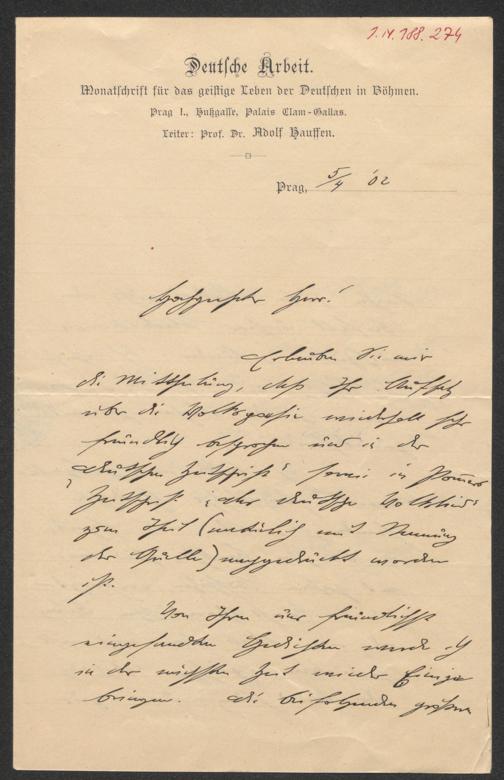 1.IV.188.274
Deutsche Arbeit.
Monatschrift für das geistige Leben der Deutschen in Böhmen.
Prag I., Hußgasse, Palais Clam-Gallas.
Leiter: Prof. Dr. Adolf Hauffen.
Prag, 5/4 '02
Hochgeehrter Herr!
Erlauben Sie mir
die Mittheilung, daß Ihr Aufsatz
über die Volkspoesie mehrfach sehr
freundlich besprochen und in der
"Deutschen Zeitschrift" sowie in Pommers
Zeitschrift: "das deutsche Volkslied"
zum Theil (natürlich mit Nennung
der Quelle) nachgedruckt worden
ist.
Von Ihren mir freundlichst
eingesandten Gedichten werde ich
in der nächsten Zeit wieder Einige
bringen. Die beifolgenden größeren